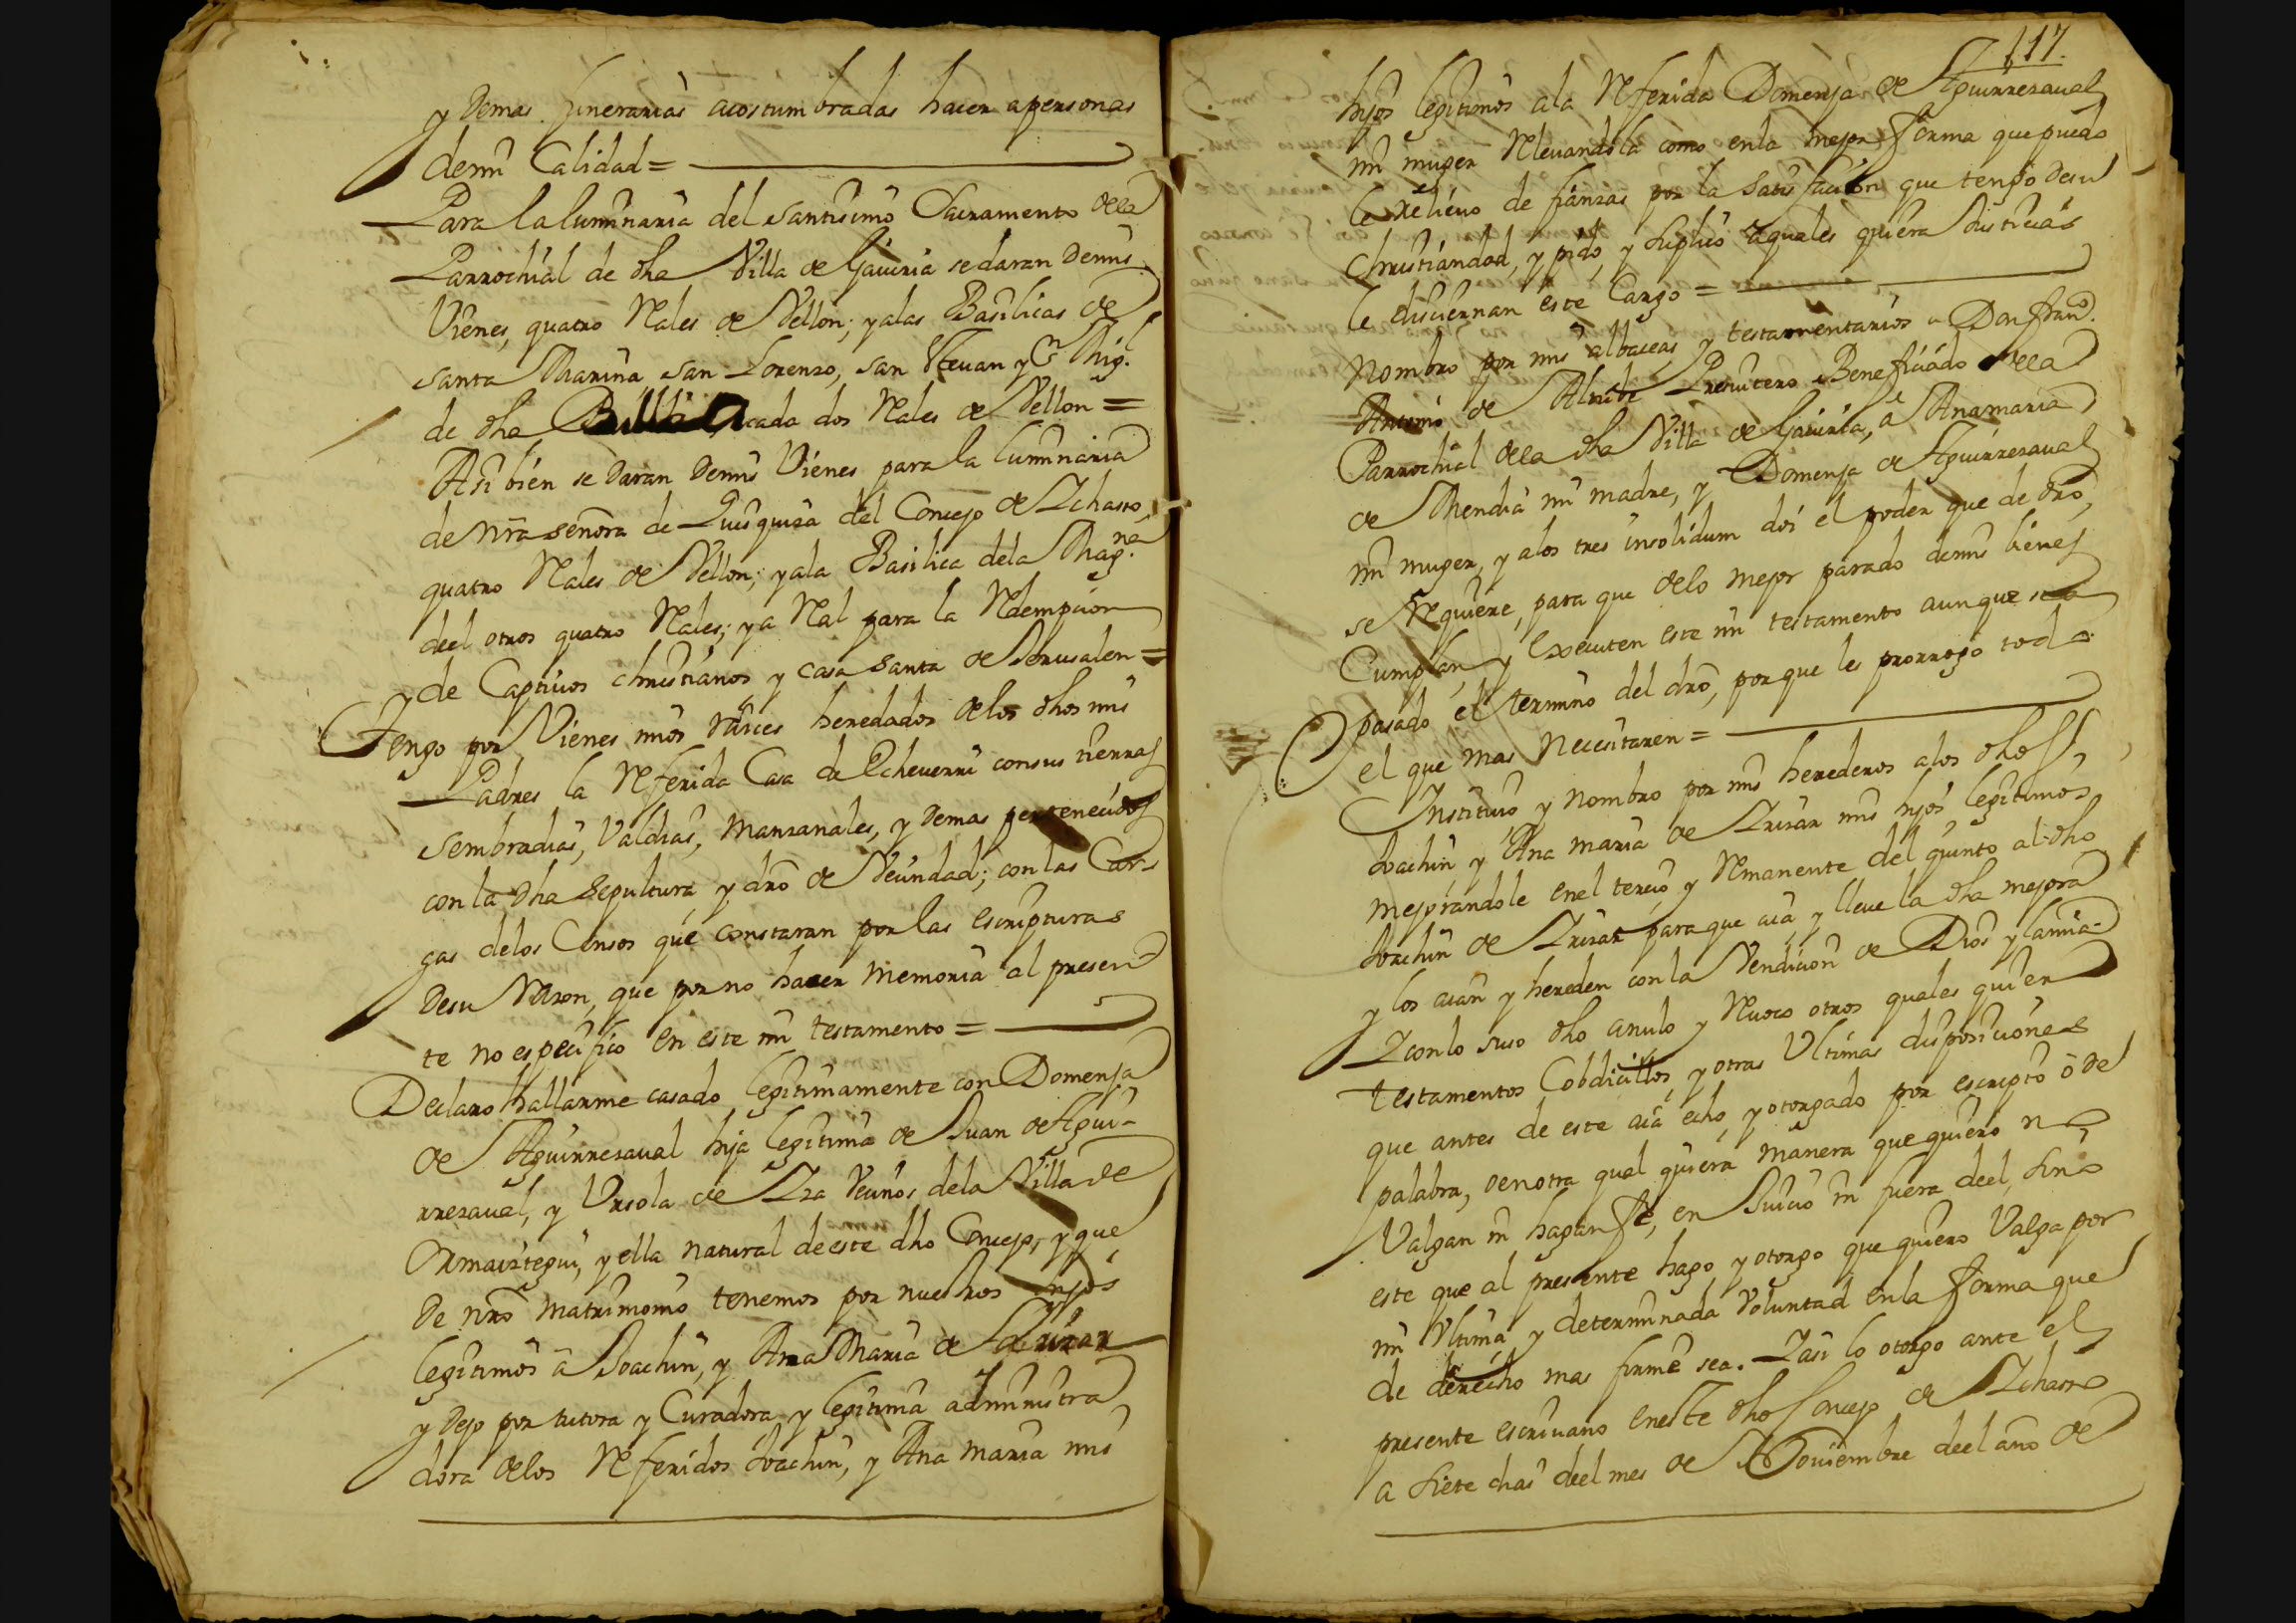 y demas funerarias acostumbradas hacer a personas
de mi Calidad =
Para la luminaria del santisimo Sacramento dela
Parrochial de dha Villa de Gaviria se daran de mis
Vienes, quatro Rales de Vellon; y alas Basilicas de
santa Marina, san Lorenzo, san Estevan y Sn Migl.
de dha Villa, a cada dos Rales de Vellon =
Asi bien se daran de mis Vienes para la luminaria
de nrã señora de Quisquiza del Concejo de Ichasso,
quatro Rales de Vellon; y ala Basilica dela Magna.
deel otros quatro Rales; y a Ral para la Redempcion
y de Captivos christianos y casa santa de Jerusalen =
Tengo por Vienes mios raices heredados delos dhos mis
Padres la Referida Casa de Echeverri con sus tierras
sembradias, Valdias, manzanales, y demas pertenecidos
con la dha sepultura, y drõ de Vecindad; con las Car-
gas delos Censos que constaran por las escripturas
de su Razon, que por no hacer memoria al presen-
te no especifico en este mi testamento =
Declaro hallarme casado legitimamente con Domenja
de Aguirrezaval hija legitima de Juan de Agui-
rrezaval, y Ursola de Iza Vecinos dela Villa de
Ormaiztegui, y ella natural de este dho Concejo, y que
de nrõ matrimonio tenemos por nuestros hijos
legitimos â Joachin, y Ana Maria de Irizar
y dejo por tutora y Curadora y legitima administra
dora delos Referidos Joachin, y Ana maria mis
117.
hijos legitimos ala Referida Domenja de Aguirrezaval
mi muger Relevandola como en la mejor forma que puedo
le relievo de fianzas por la satisfacion que tengo de su
christiandad, y pido, y suplico a quales quiera Justicias
le disciernan este Cargo =
Nombro por mis albaceas, y testamentarios a Don franco.
Antonio de Presvitero Beneficiado dela
Parrochial dela dha Villa de Gaviria, â Anamaria
de Mendia mi madre, y Domenja de Aguirrezaval
mi muger, y alos tres insolidum doi el poder que de drõ,
se Requiere, para que delo mejor parado de mis bienes
Cumplan, y Executen este mi testamento aunque sea
pasado el termino del drõ, porque les prorrogo todo
el que mas Necesitaren =
Instituio y nombro por mis herederos a los dhos
Joachin y Ana maria de Irizar mis hijos legitimos,
mejorandole en el tercio, y Remanente del quinto al dho
Joachin de Irizar para que aia, y lleve la dha mejora
y los aian y hereden con la Vendicion de Dios y la mia =
I con lo suso dho anulo y Revoco otros quales quier
testamentos Cobdicillos, y otras Ultimas disposiciones
que antes de este aia echo, y otorgado por escripto ô de
palabra, ô en otra qual quiera manera que quiero no
Valgan ni hagan fe, en Juicio ni fuera deel, sino
este que al presente hago, y otorgo que quiero Valga por
mi Ultima, y determinada Voluntad en la forma que
de derecho mas firme sea. I asi lo otorgo ante el
presente escrivano en este dho Concejo de Ichasso
a siete dias deel mes de Noviembre deel año de